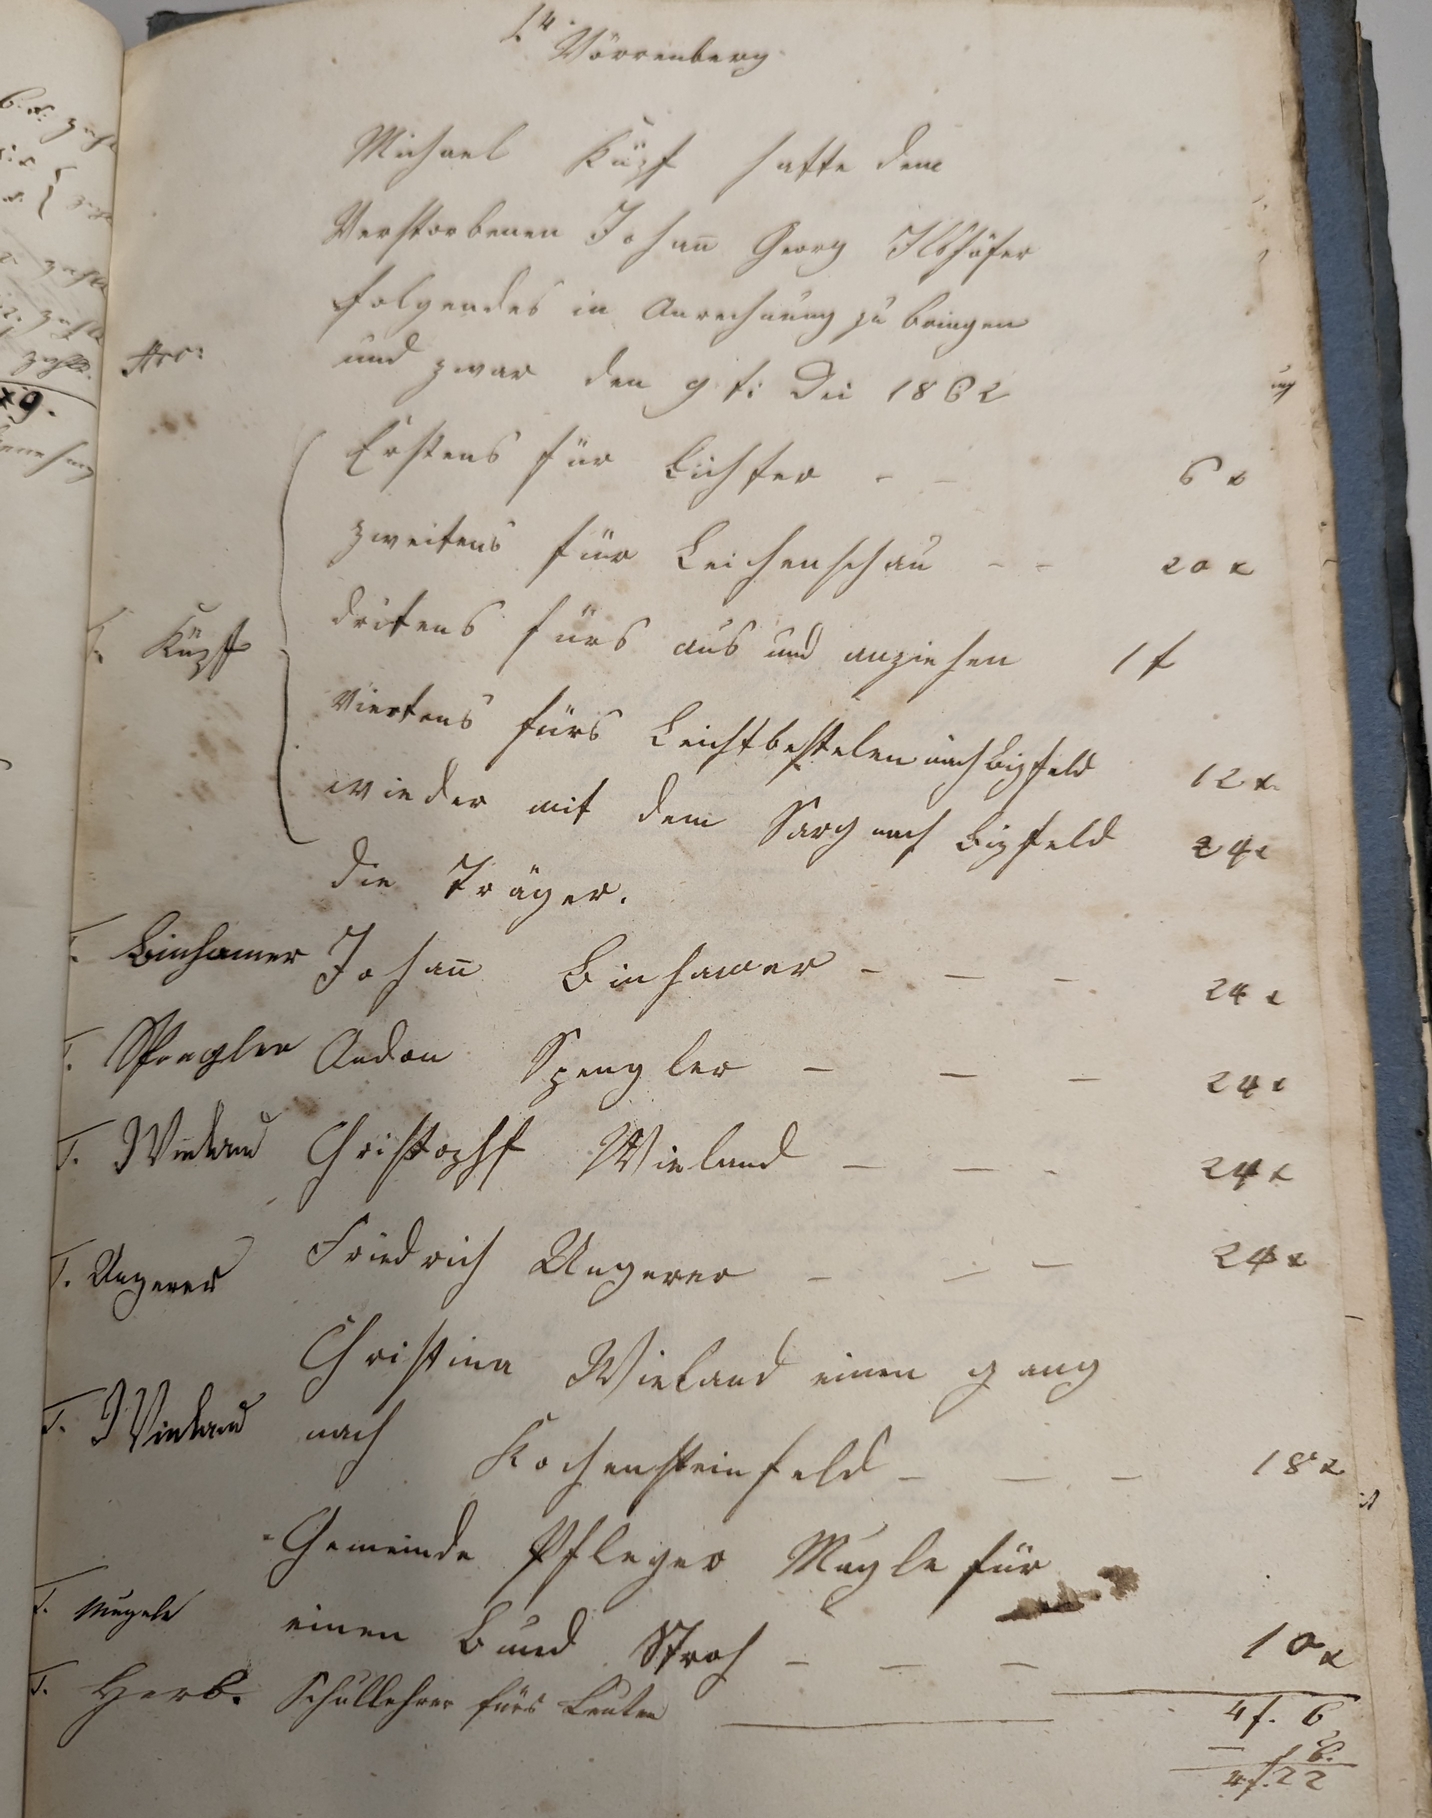 Vörrenberg
Michael Küpf hatte dem
Verstorbenen Johan̄ Georg Ilshöfer
folgendes in Anrechnung zu bringen
und zwar den 9 t: Dei 1862
Erstens für Lichter - - 6 x
zweitens für Leichenschau - - 20 x
T. Küpf
dritens fürs aus und anziehen 1 f
viertens fürs Leichtbestelen nach Bizfeld 12 x.
wieder mit dem Sarg nach Bizfeld 24 x
die Träger.
T. Binhamer Johan̄ Binhamer - - - 24 x
T. Spengler Andon Spengler - - - 24 x
T. Wieland Christophf Wieland - - - 24 x
T. Ungerer Friedrich Ungerer - - - 24 x
Christina Wieland einen gang
T. Wieland nach Kochensteinfeld - - - 18 x
Gemeinde Pfleger Mugle für
T. Mugele einen Bund Stroh - - - 10 x
4 f. 6
T. Herb. Schullehrer fürs Leuten
16.
4 f. 22